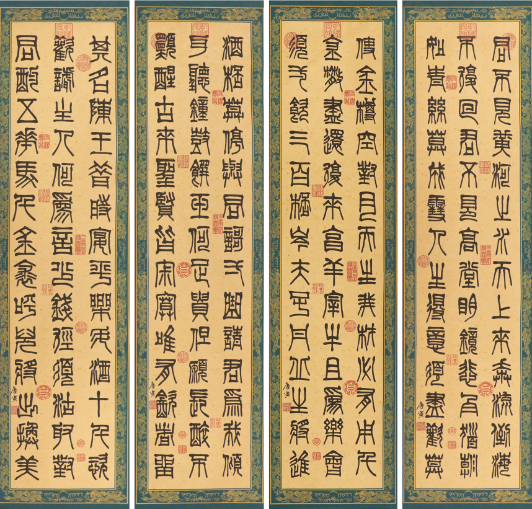 君不見黃河之水天上來奔流到海
不復回君不見高堂明鏡悲白髮朝
如青絲莫成雪人生得意須盡歡莫
使金樽空對月天生我材必有用千
金散盡還復來烹羊宰牛且爲樂會
須弌飲三百桮岑夫子丹丘生將進
酒桮莫停與君謌弌曲請君爲我傾
耳聽鐘鼓饌玉何足貴但願長醉不
願醒古來聖賢皆寂寞唯有飲者留
其名陳王昔時宴平樂斗酒十千恣
歡謔主人何爲言少錢徑須沽取對
君酌五花馬千金裘呼兒將出換美